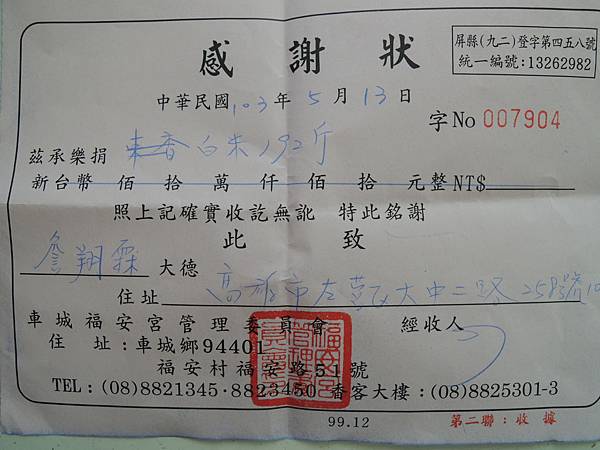 屏縣(九二)登字第四五八號
統一編號:13262982
感謝狀
中華民國103年5月13日
字No 007904
茲承樂捐 白米192斤
新台幣 佰 拾 萬 仟 佰 拾 元整 NT$
照上記確實收訖無訛 特此銘謝
此致
詹翔霖 大德
住址 高雄市左營區大中二路258號10
車城福安宮管理委員會 經收人
住 址:車城鄉94401
福安村福安路51號
TEL:(08)8821345·8823450 香客大樓:(08)8825301-3
99.12 第二聯:收據